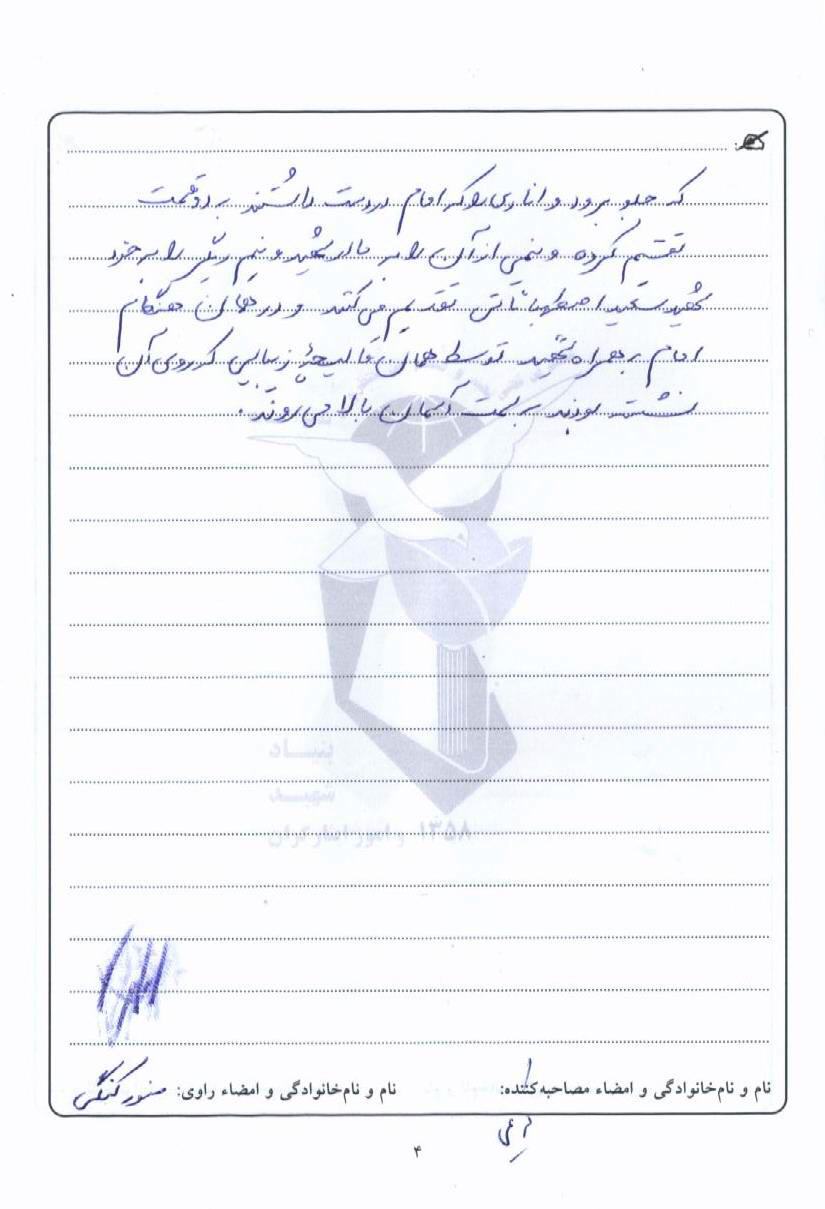 که جلو برود و اناری را که امام در دست داشتند به دو قسمت
تقسیم کرده و نیمی از آن را به مادر شهید و نیم دیگر را به خود
شهید سعید تقدیم می کنند و در همان هنگام
امام به همراه شهید توسط همان قالیچهٔ زیبایی که روی آن
نشسته بودند به سمت آسمان بالا می روند.
بنیاد
شهید
و امور ایثارگران ۱۳۵۸
نام و نام‌خانوادگی و امضاء مصاحبه‌کننده:
نام و نام‌خانوادگی و امضاء راوی: منور
۴